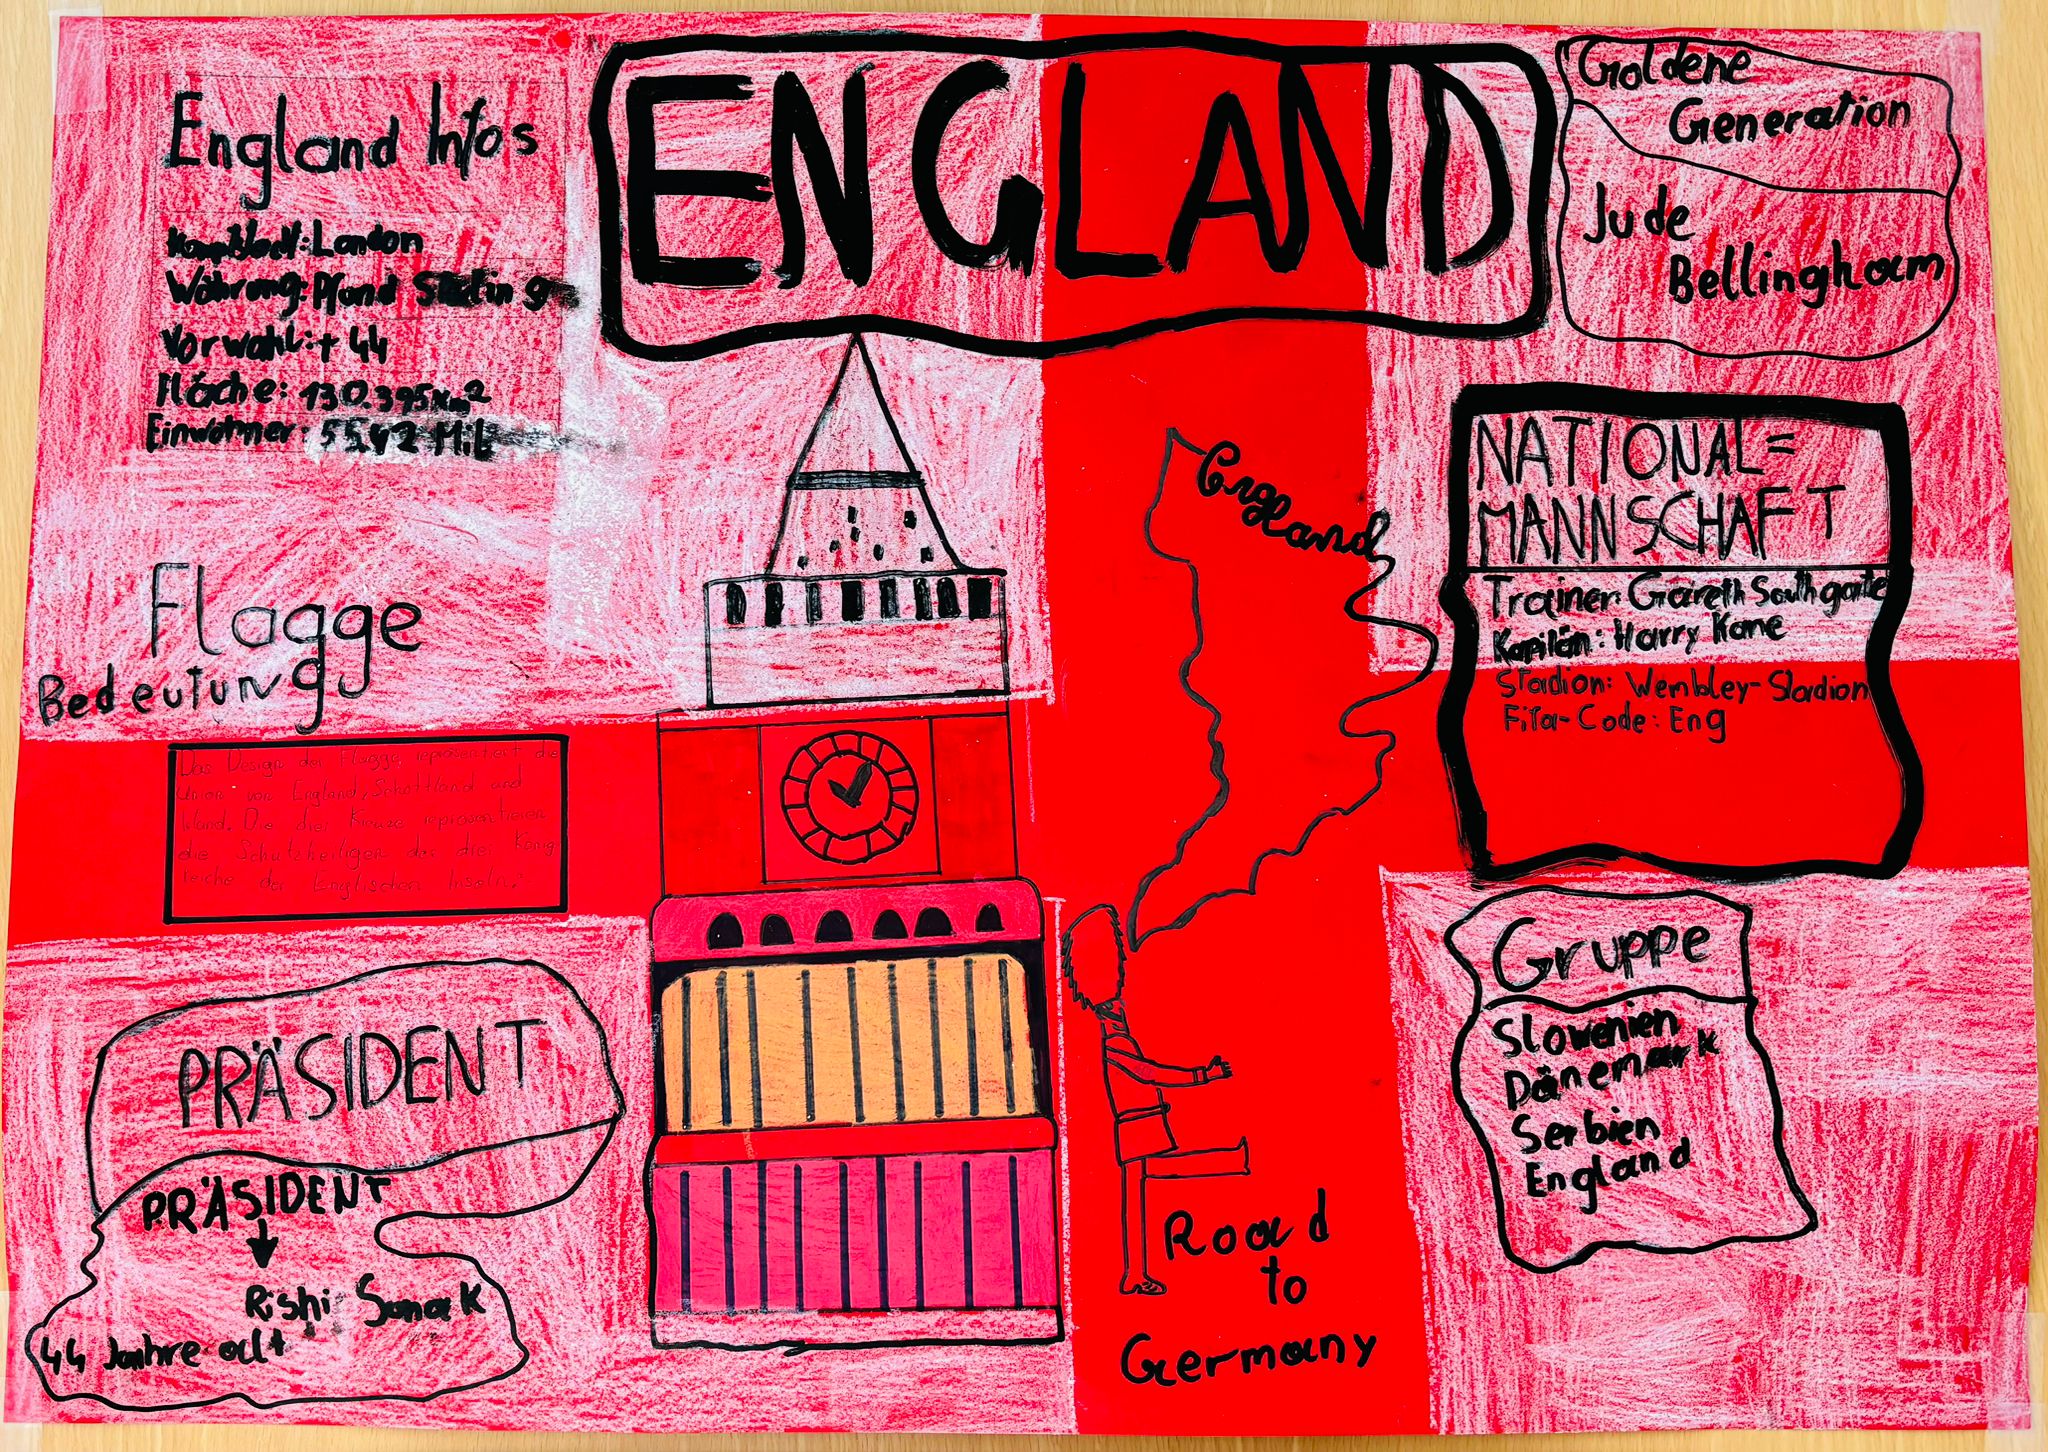 ENGLAND
England Infos
Hauptstadt: London
Währung: Pfand Sterling
Vorwahl: + 44
Fläche: 130.395 km²
Einwohner: 55.42 Mil
Flagge
Bedeutung
Das Design der Flagge repräsentiert die
Union von England, Schottland und
Irland. Die drei Kreuze repräsentieren
die Schutzheiligen das drei König
reiche der Englischen Inseln.
PRÄSIDENT
PRÄSIDENT
Rishi Sunak
44 Jahre alt
England
Road
to
Germany
Goldene
Generation
Jude
Bellingham
NATIONAL=
MANNSCHAFT
Trainer: Gareth Southgate
Kapitän: Harry Kane
Stadion: Wembley-Stadion
Fifa-Code: Eng
Gruppe
Slowenien
Dänemark
Serbien
England